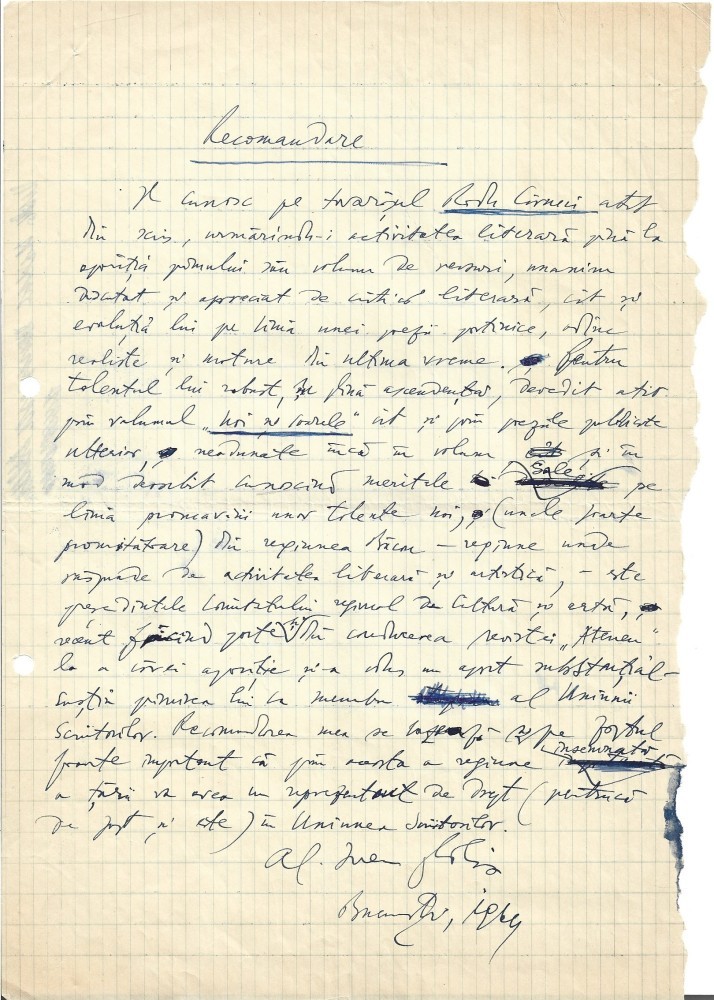 Recomandare
Îl cunosc pe tovarășul Radu Cîrneci atît
din scris, urmărindu-i activitatea literară pînă la
apariția primului său volum de versuri, unanim
discutat și apreciat de critica literară, cît și
evoluția lui pe linia unei poezii partinice, adînc
realiste și mature din ultima vreme. Pentru
talentul lui robust, în linie ascendentă, dovedit atît
prin volumul „Noi și soarele" cît și prin poeziile publicate
ulterior, neadunate încă în volum și în
mod deosebit cunoscînd meritele sale pe
linia promovării unor talente noi, (unele foarte
promițătoare) din regiunea Bacău – regiune unde
răspunde de activitatea literară și artistică, – este
președintele Comitetului regional de Cultură și artă,
recent făcînd parte și din conducerea revistei „Ateneu"
la a cărei apariție și-a adus un aport substanțial –
susțin primirea lui ca membru al Uniunii
Scriitorilor. Recomandarea mea se bazează și pe faptul
foarte important că prin aceasta o regiune însemnată
a țării va avea un reprezentant de drept (pentrucă
de fapt și este) în Uniunea Scriitorilor.
Al. Ivan Ghilia
București, 1964